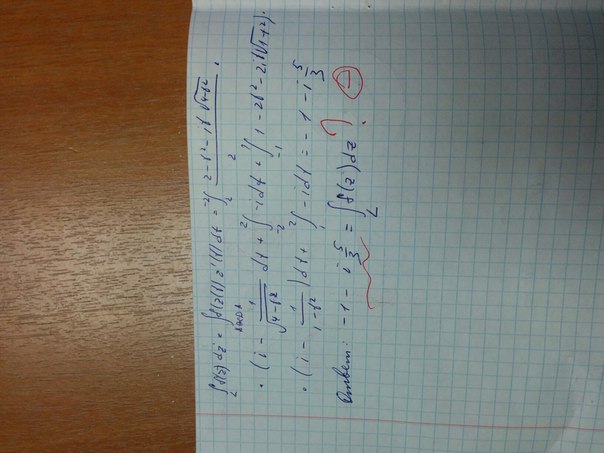 ∫_L f(z) dz = ∫_{ABCDA} f(z(t)) z'(t) dt = ∫_2^{-2} (2 - t² - it√(4-t²)) ·
· (i - 1/√(4-t²)) dt + ∫_{-2} - i dt + ∫_{-1} 1 - 2t² - 2it√(1-t²) ·
· (i - 1/(1-t²)) dt + ∫ - i dt = -1 - i 5/3
Ответ: -1 - i 5/3 = ∫_L f(z) dz